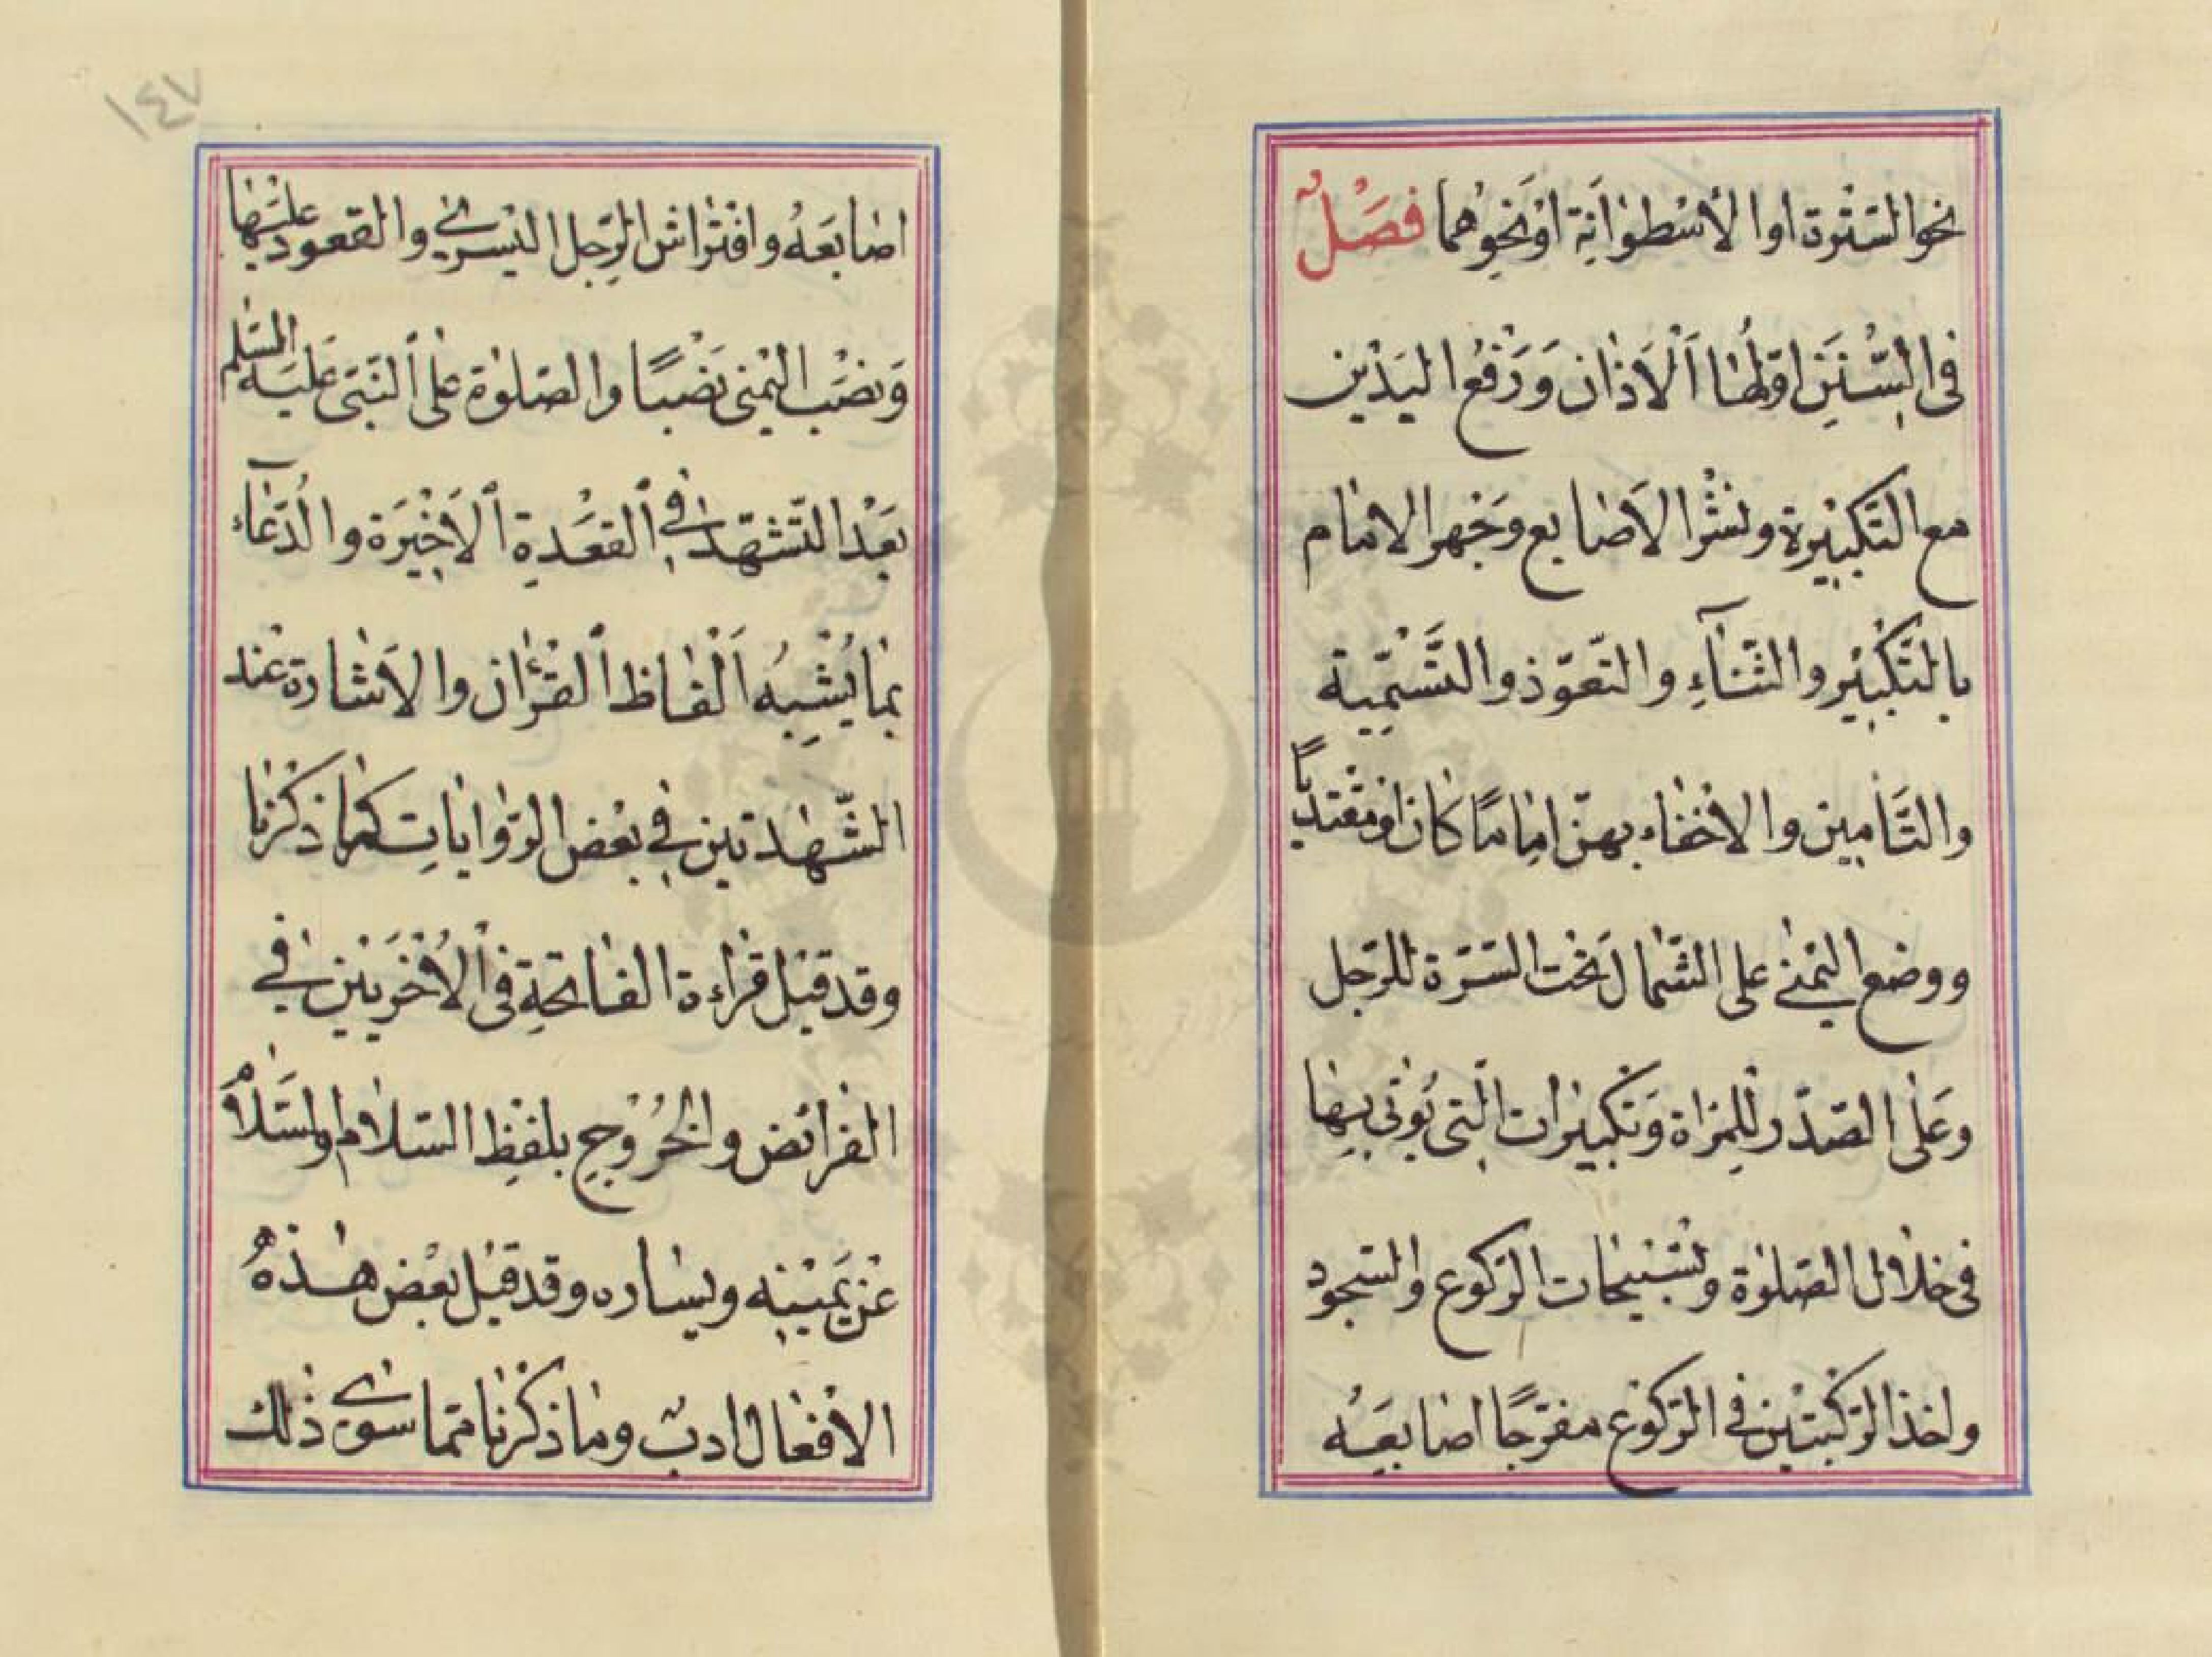 نحو السترة او الأسطوانة او نحوهما فصل
فى السنن اولها الاذان ورفع اليدين
مع التكبيرة ونشر الاصابع وجهر الامام
بالتكبير والثناء والتعوذ والتسمية
والتامين والاخفاء بهن اماما كان او مقتديا
ووضع اليمنى على الشمال تحت السرة للرجل
وعلى الصدر للمراة وتكبيرات التى يؤتى بها
فى خلال الصلوة وتسبيحات الركوع والسجود
واخذ الركبتين فى الركوع مفرجا اصابعه
١٤٧
اصابعه وافتراش الرجل اليسرى والقعود عليها
ونصب اليمنى نصبا والصلوة على النبى عليه السلم
بعد التشهد فى القعدة الاخيرة والدعاء
بما يشبه الفاظ القرءان والاشارة عند
الشهادتين فى بعض الروايات كما ذكرنا
وقد قيل قراءة الفاتحة فى الاخريين فى
الفرائض والخروج بلفظ السلام والسلام
عن يمينه ويساره وقد قيل بعض هذه
الافعال ادب وما ذكرنا مما سوى ذلك